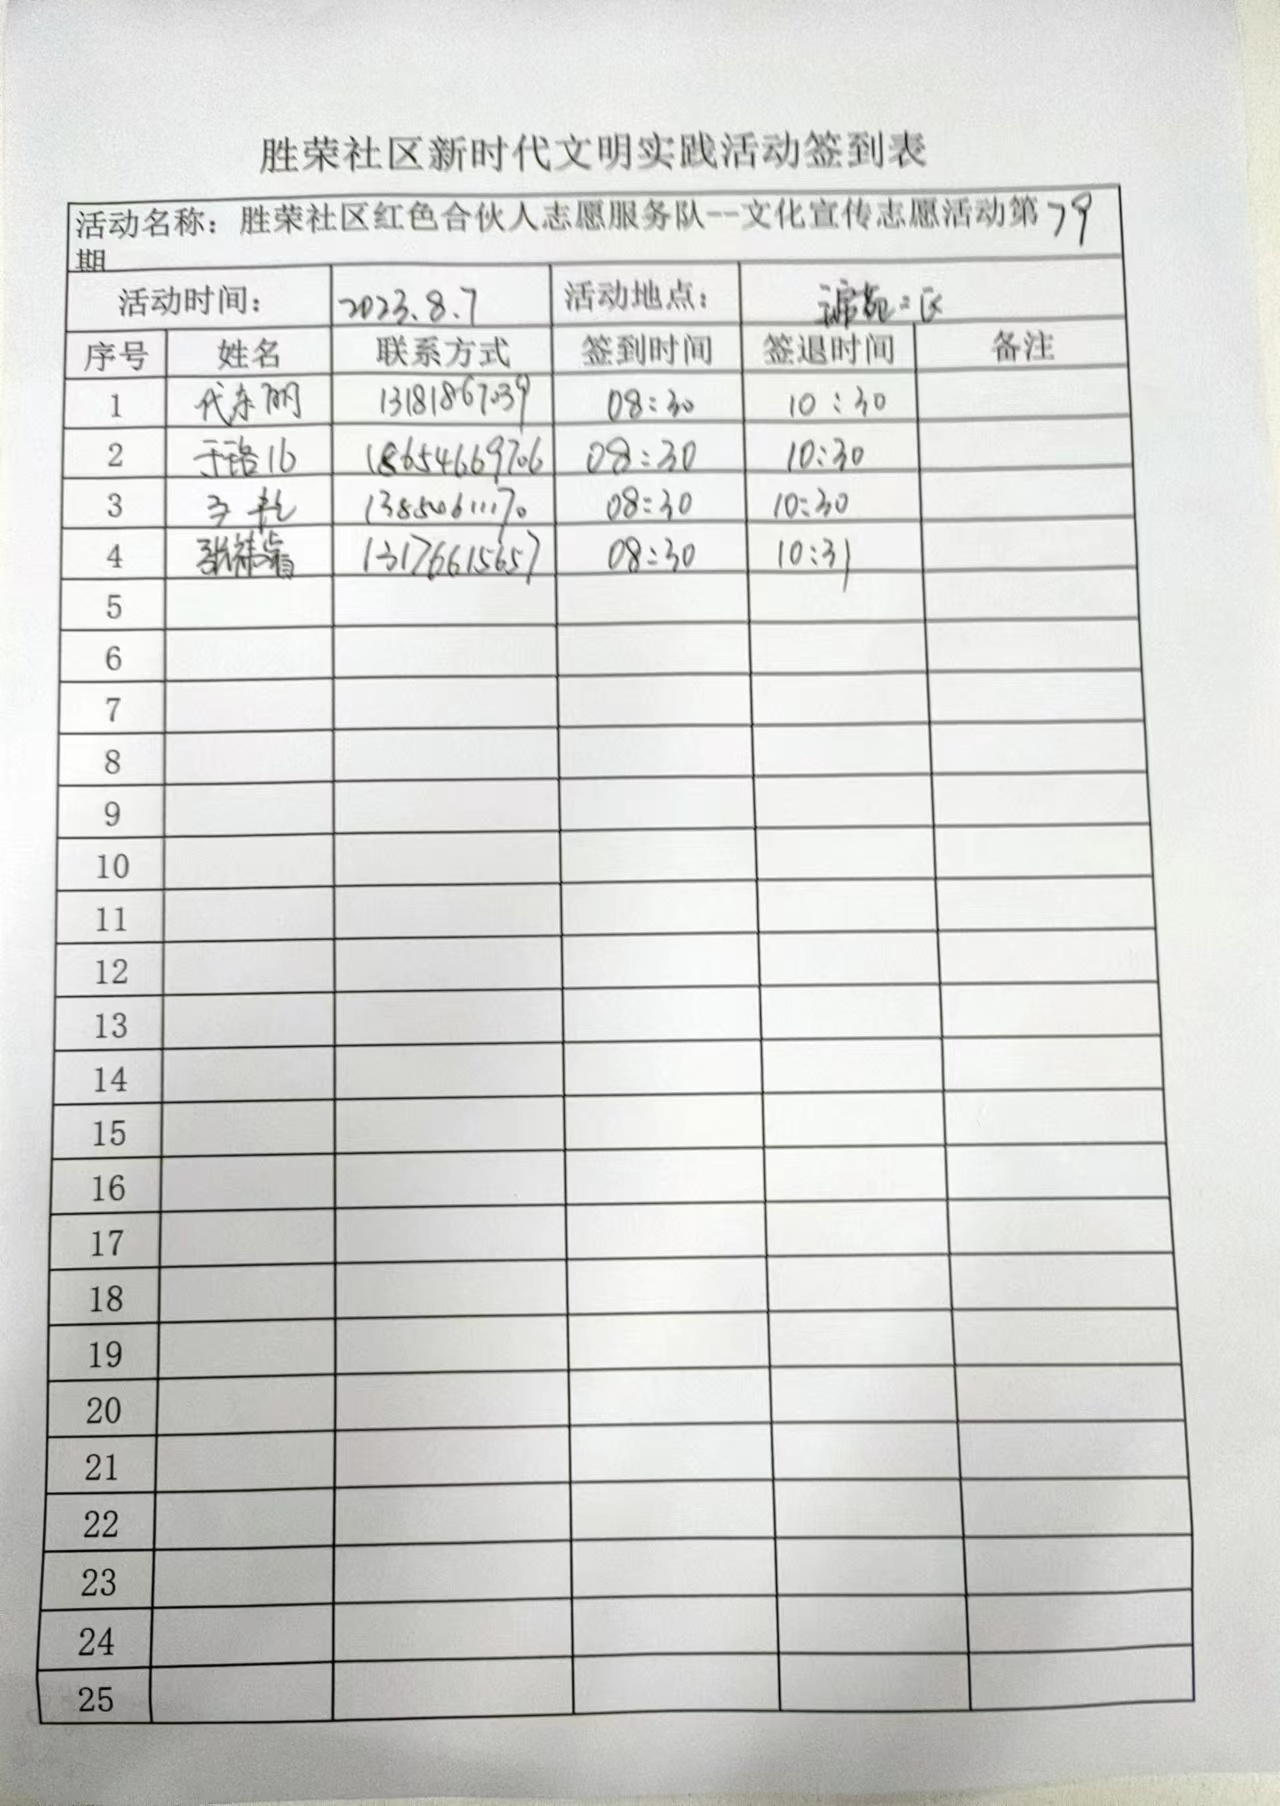 胜荣社区新时代文明实践活动签到表
活动名称：胜荣社区红色合伙人志愿服务队--文化宣传志愿活动第79
期
活动时间： 2023.8.7 活动地点： 二区
序号 姓名 联系方式 签到时间 签退时间 备注
1 代东丽 13181867039 08:30 10:30
2 18654669706 08:30 10:30
3 08:30 10:30
4 13176615657 08:30 10:31
5
6
7
8
9
10
11
12
13
14
15
16
17
18
19
20
21
22
23
24
25